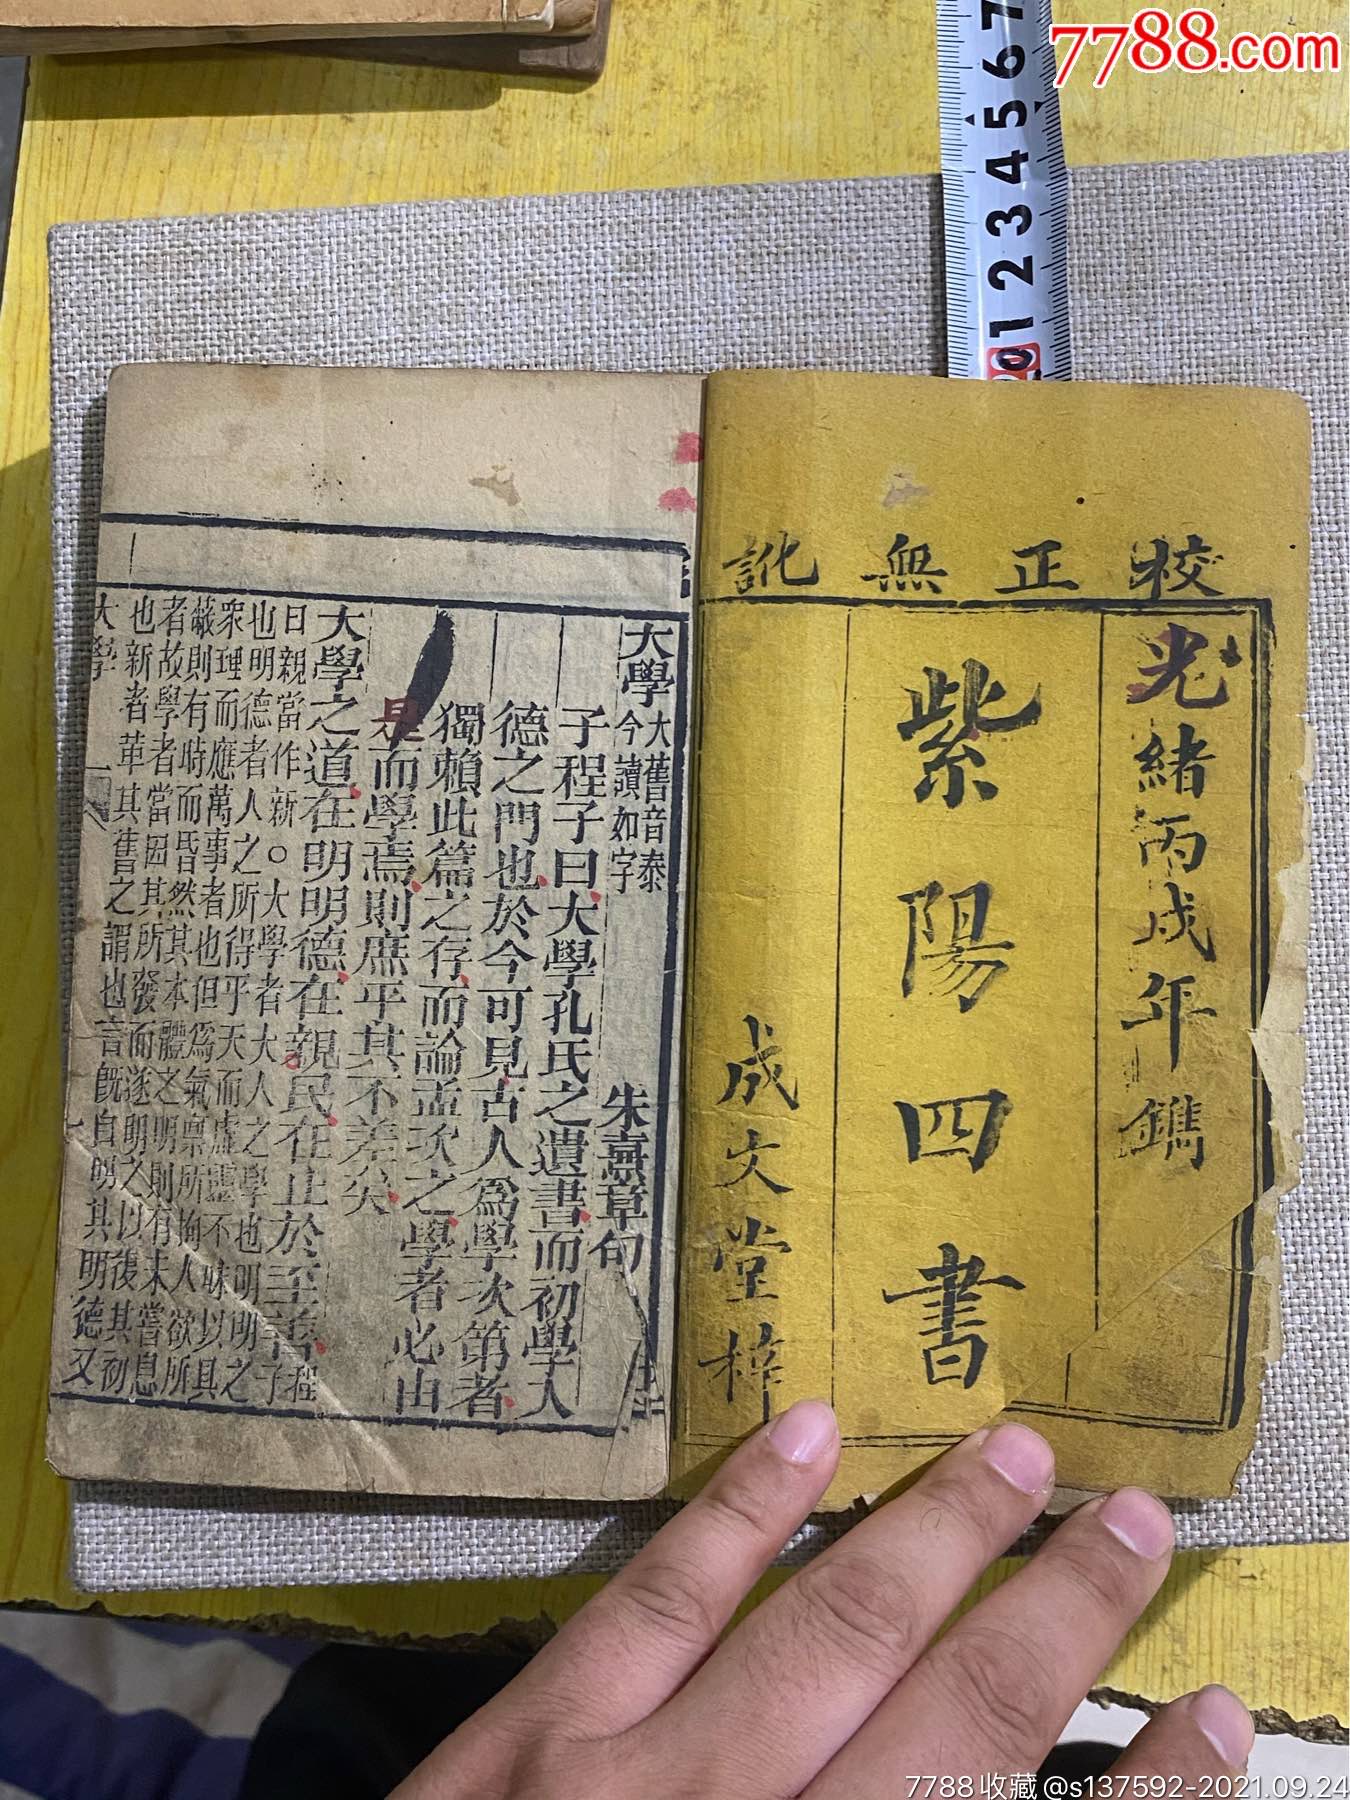 7788.com
7
6
5
4
3
2
1
校正無訛
光緒丙戌年鐫
紫陽四書
成文堂梓
大學 大舊音泰 今讀如字 朱熹章句
子程子曰大學孔氏之遺書而初學入
德之門也於今可見古人為學次第者
獨賴此篇之存而論孟次之學者必由
是而學焉則庶乎其不差矣
大學之道在明明德在親民在止於至善 程子
曰親當作新○大學者大人之學也明明之
也明德者人之所得乎天而虛靈不昧以具
眾理而應萬事者也但為氣稟所拘人欲所
蔽則有時而昏然其本體之明則有未嘗息
者故學者當因其所發而遂明之以復其初
也新者革其舊之謂也言既自明其明德又
大學
7788收藏@s137592-2021.09.24